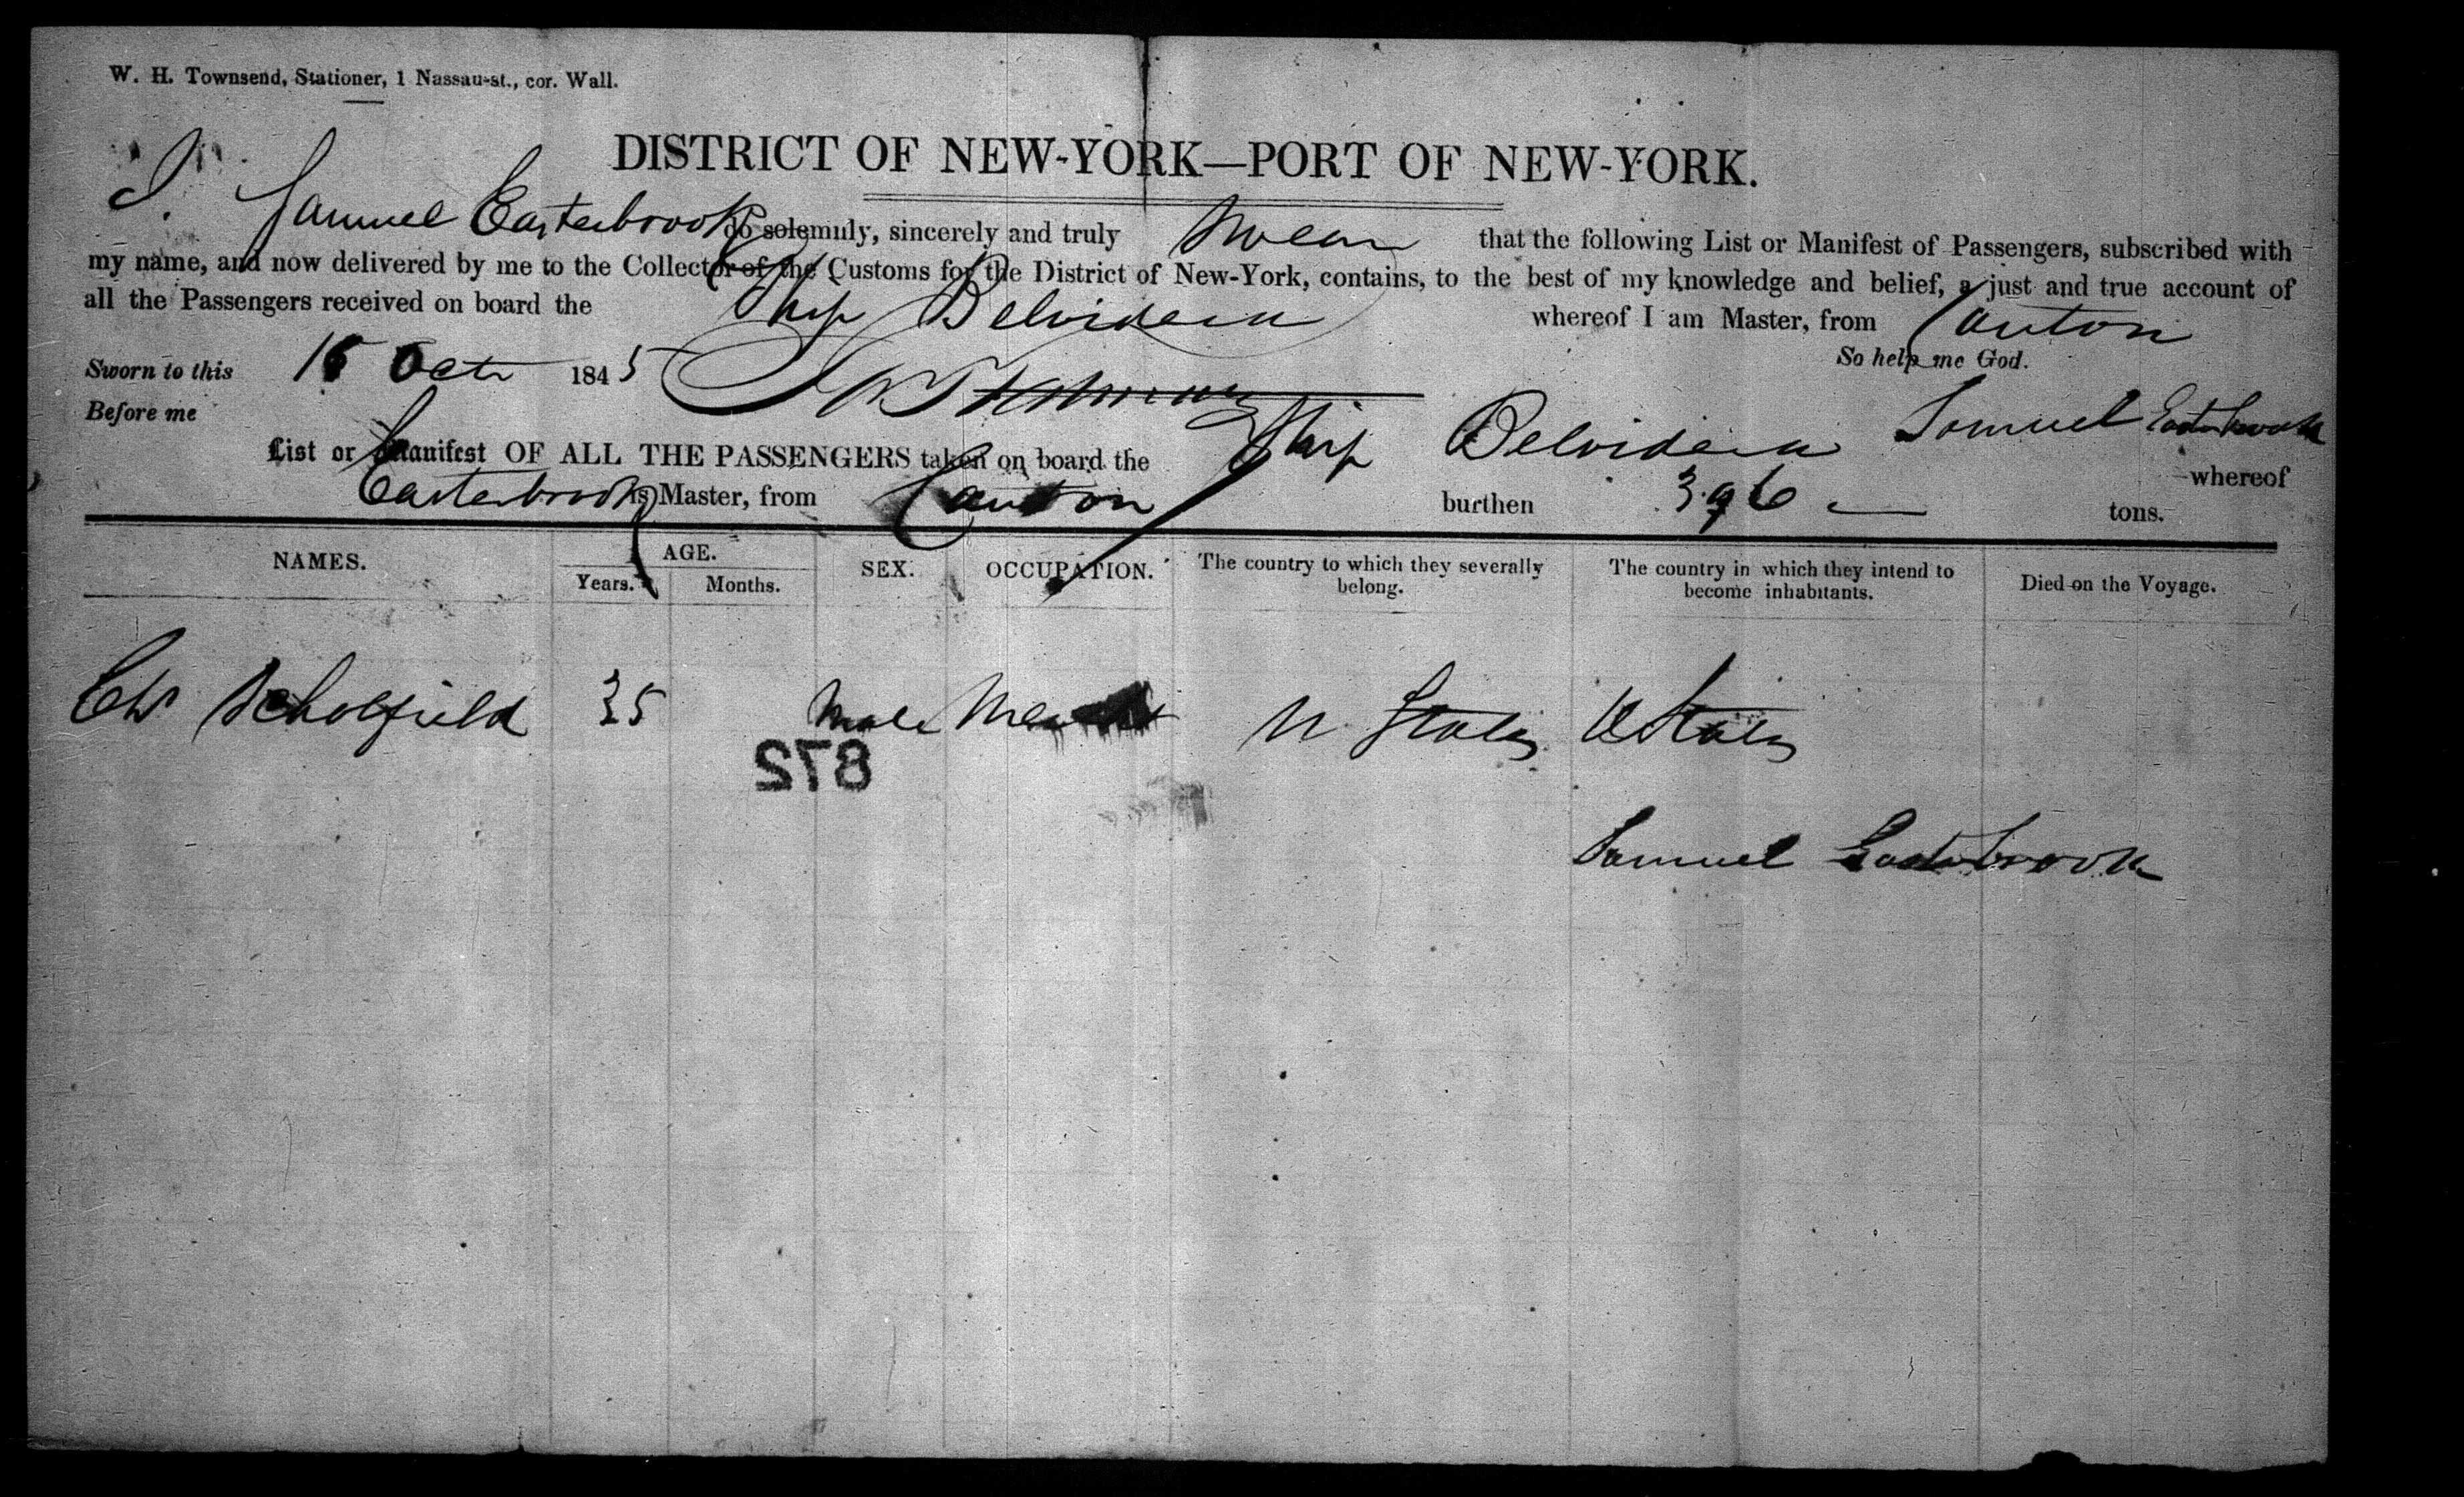 W. H. Townsend, Stationer, 1 Nassau-st., cor. Wall.
DISTRICT OF NEW-YORK—PORT OF NEW-YORK.
I. Samuel Easterbrook do solemnly, sincerely and truly swear that the following List or Manifest of Passengers, subscribed with
my name, and now delivered by me to the Collector of the Customs for the District of New-York, contains, to the best of my knowledge and belief, a just and true account of
all the Passengers received on board the Ship Belvidera whereof I am Master, from Canton
So help me God.
Sworn to this Octr 1845
Before me
Samuel Easterbrook
List or Manifest OF ALL THE PASSENGERS taken on board the Ship Belvidera whereof
Easterbrook is Master, from Canton burthen 396 tons.
NAMES. AGE. SEX. OCCUPATION. The country to which they severally belong. The country in which they intend to become inhabitants. Died on the Voyage.
Years. Months.
Scholfield 35 Male U States U States
872
Samuel Easterbrook